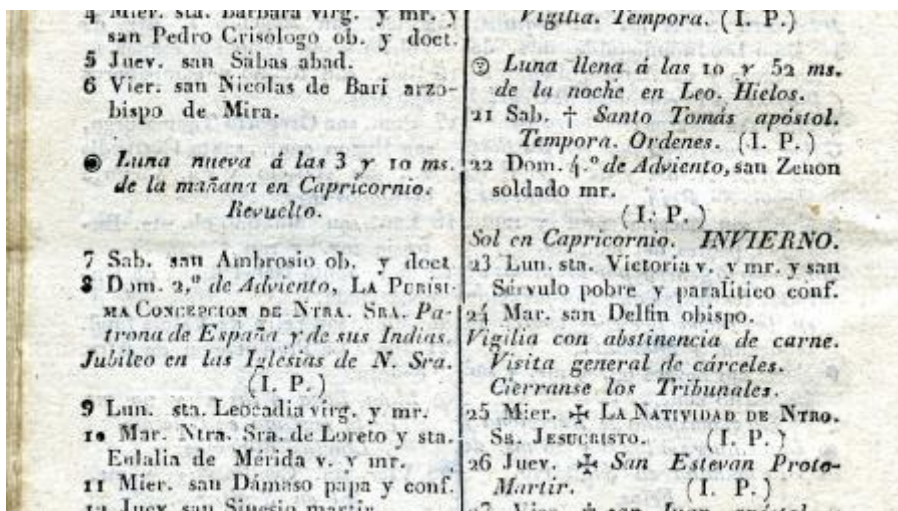 4 Mier. sta. Barbara virg. y mr. y
san Pedro Crisólogo ob. y doct.
5 Juev. san Sabas abad.
6 Vier. san Nicolas de Bari arzo-
bispo de Mira.
Luna nueva á las 3 y 10 ms.
de la mañana en Capricornio.
Revuelto.
7 Sab. san Ambrosio ob. y doct
8 Dom. 2.º de Adviento, LA PURÍSI-
MA CONCEPCION DE NTRA. SRA. Pa-
trona de España y de sus Indias.
Jubileo en las Iglesias de N. Sra.
(I. P.)
9 Lun. sta. Leocadia virg. y mr.
10 Mar. Ntra. Sra. de Loreto y sta.
Eulalia de Mérida v. y mr.
11 Mier. san Dámaso papa y conf.
12 Juev. san Sinesio martir.
Vigilia. Tempora. (I. P.)
Luna llena á las 10 y 52 ms.
de la noche en Leo. Hielos.
21 Sab. † Santo Tomás apóstol.
Tempora. Ordenes. (I. P.)
22 Dom. 4.º de Adviento, san Zenon
soldado mr.
(I. P.)
Sol en Capricornio. INVIERNO.
23 Lun. sta. Victoria v. y mr. y san
Sérvulo pobre y paralitico conf.
24 Mar. san Delfin obispo.
Vigilia con abstinencia de carne.
Visita general de cárceles.
Cierranse los Tribunales.
25 Mier. ✠ LA NATIVIDAD DE NTRO.
SR. JESUCRISTO. (I. P.)
26 Juev. ✠ San Estevan Proto-
Martir. (I. P.)
27 Vier. ✠ san Juan apóstol